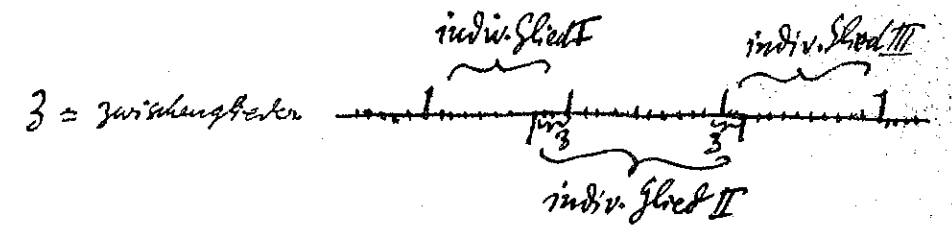 indiv. Glied I
indiv. Glied III
Z = Zwischenglieder
Z
Z
indiv. Glied II